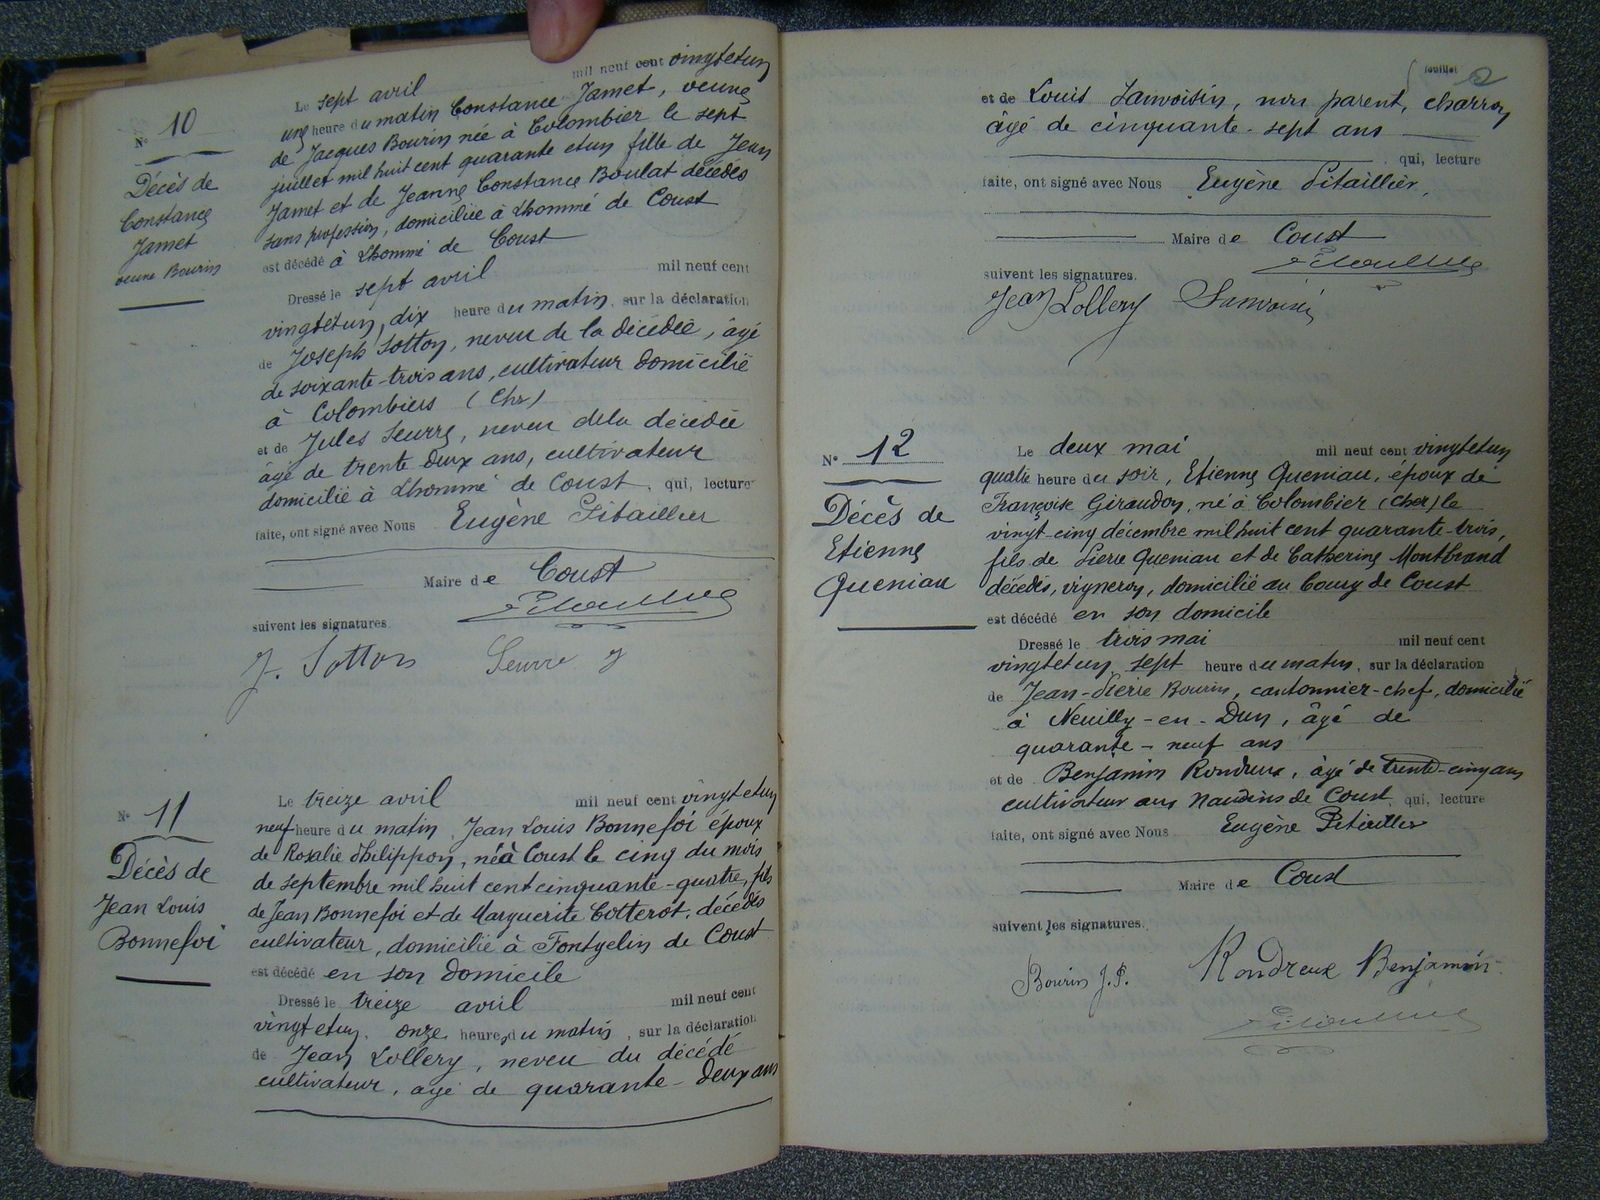 N° 10
Décès de
Constance
Jamet
veuve Bourin
Le sept avril mil neuf cent vingt et un
une heure du matin Constance Jamet, veuve
de Jacques Bourin née à Colombier le sept
juillet mil huit cent quarante et un fille de Jean
Jamet et de Jeanne Constance Boulat décédés
sans profession, domiciliée à Lhommé de Coust
est décédé à Lhommé de Coust
Dressé le sept avril mil neuf cent
vingt et un, dix heure du matin, sur la déclaration
de Joseph Sotton, neveu de la décédée, âgé
de soixante-trois ans, cultivateur domicilié
à Colombiers (Cher)
et de Jules Seurre, neveu de la décédée
âgé de trente deux ans, cultivateur
domicilié à Lhommé de Coust, qui, lecture
faite, ont signé avec Nous Eugène Pitaillier
Maire de Coust
suivent les signatures
J. Sotton Seurre J
N° 11
Décès de
Jean Louis
Bonnefoi
Le treize avril mil neuf cent vingt et un
neuf heure du matin, Jean Louis Bonnefoi époux
de Rosalie Philippon, né à Coust le cinq du mois
de septembre mil huit cent cinquante-quatre, fils
de Jean Bonnefoi et de Marguerite Cotterot, décédés
cultivateur, domicilié à Fontgelin de Coust
est décédé en son domicile
Dressé le treize avril mil neuf cent
vingt et un, onze heure du matin, sur la déclaration
de Jean Lollery, neveu du décédé
cultivateur, âgé de quarante-deux ans
feuillet
et de Louis Sanvoisin, non parent, charron
âgé de cinquante-sept ans
qui, lecture
faite, ont signé avec Nous Eugène Pitaillier,
Maire de Coust
suivent les signatures.
Jean Lollery Sanvoisin
N° 12
Décès de
Etienne
Queniau
Le deux mai mil neuf cent vingt et un
quatre heure du soir, Etienne Queniau, époux de
Françoise Giraudon, né à Colombier (Cher) le
vingt-cinq décembre mil huit cent quarante-trois,
fils de Pierre Queniau et de Catherine Montbrand
décédés, vigneron, domicilié au Bourg de Coust
est décédé en son domicile
Dressé le trois mai mil neuf cent
vingt et un, sept heure du matin, sur la déclaration
de Jean-Pierre Bourin, cantonnier-chef, domicilié
à Neuilly-en-Dun, âgé de
quarante-neuf ans
et de Benjamin Rondreux, âgé de trente-cinq ans
cultivateur aux Naudins de Coust, qui, lecture
faite, ont signé avec Nous Eugène Pitaillier
Maire de Coust
suivent les signatures.
Bourin J.P. Rondreux Benjamin